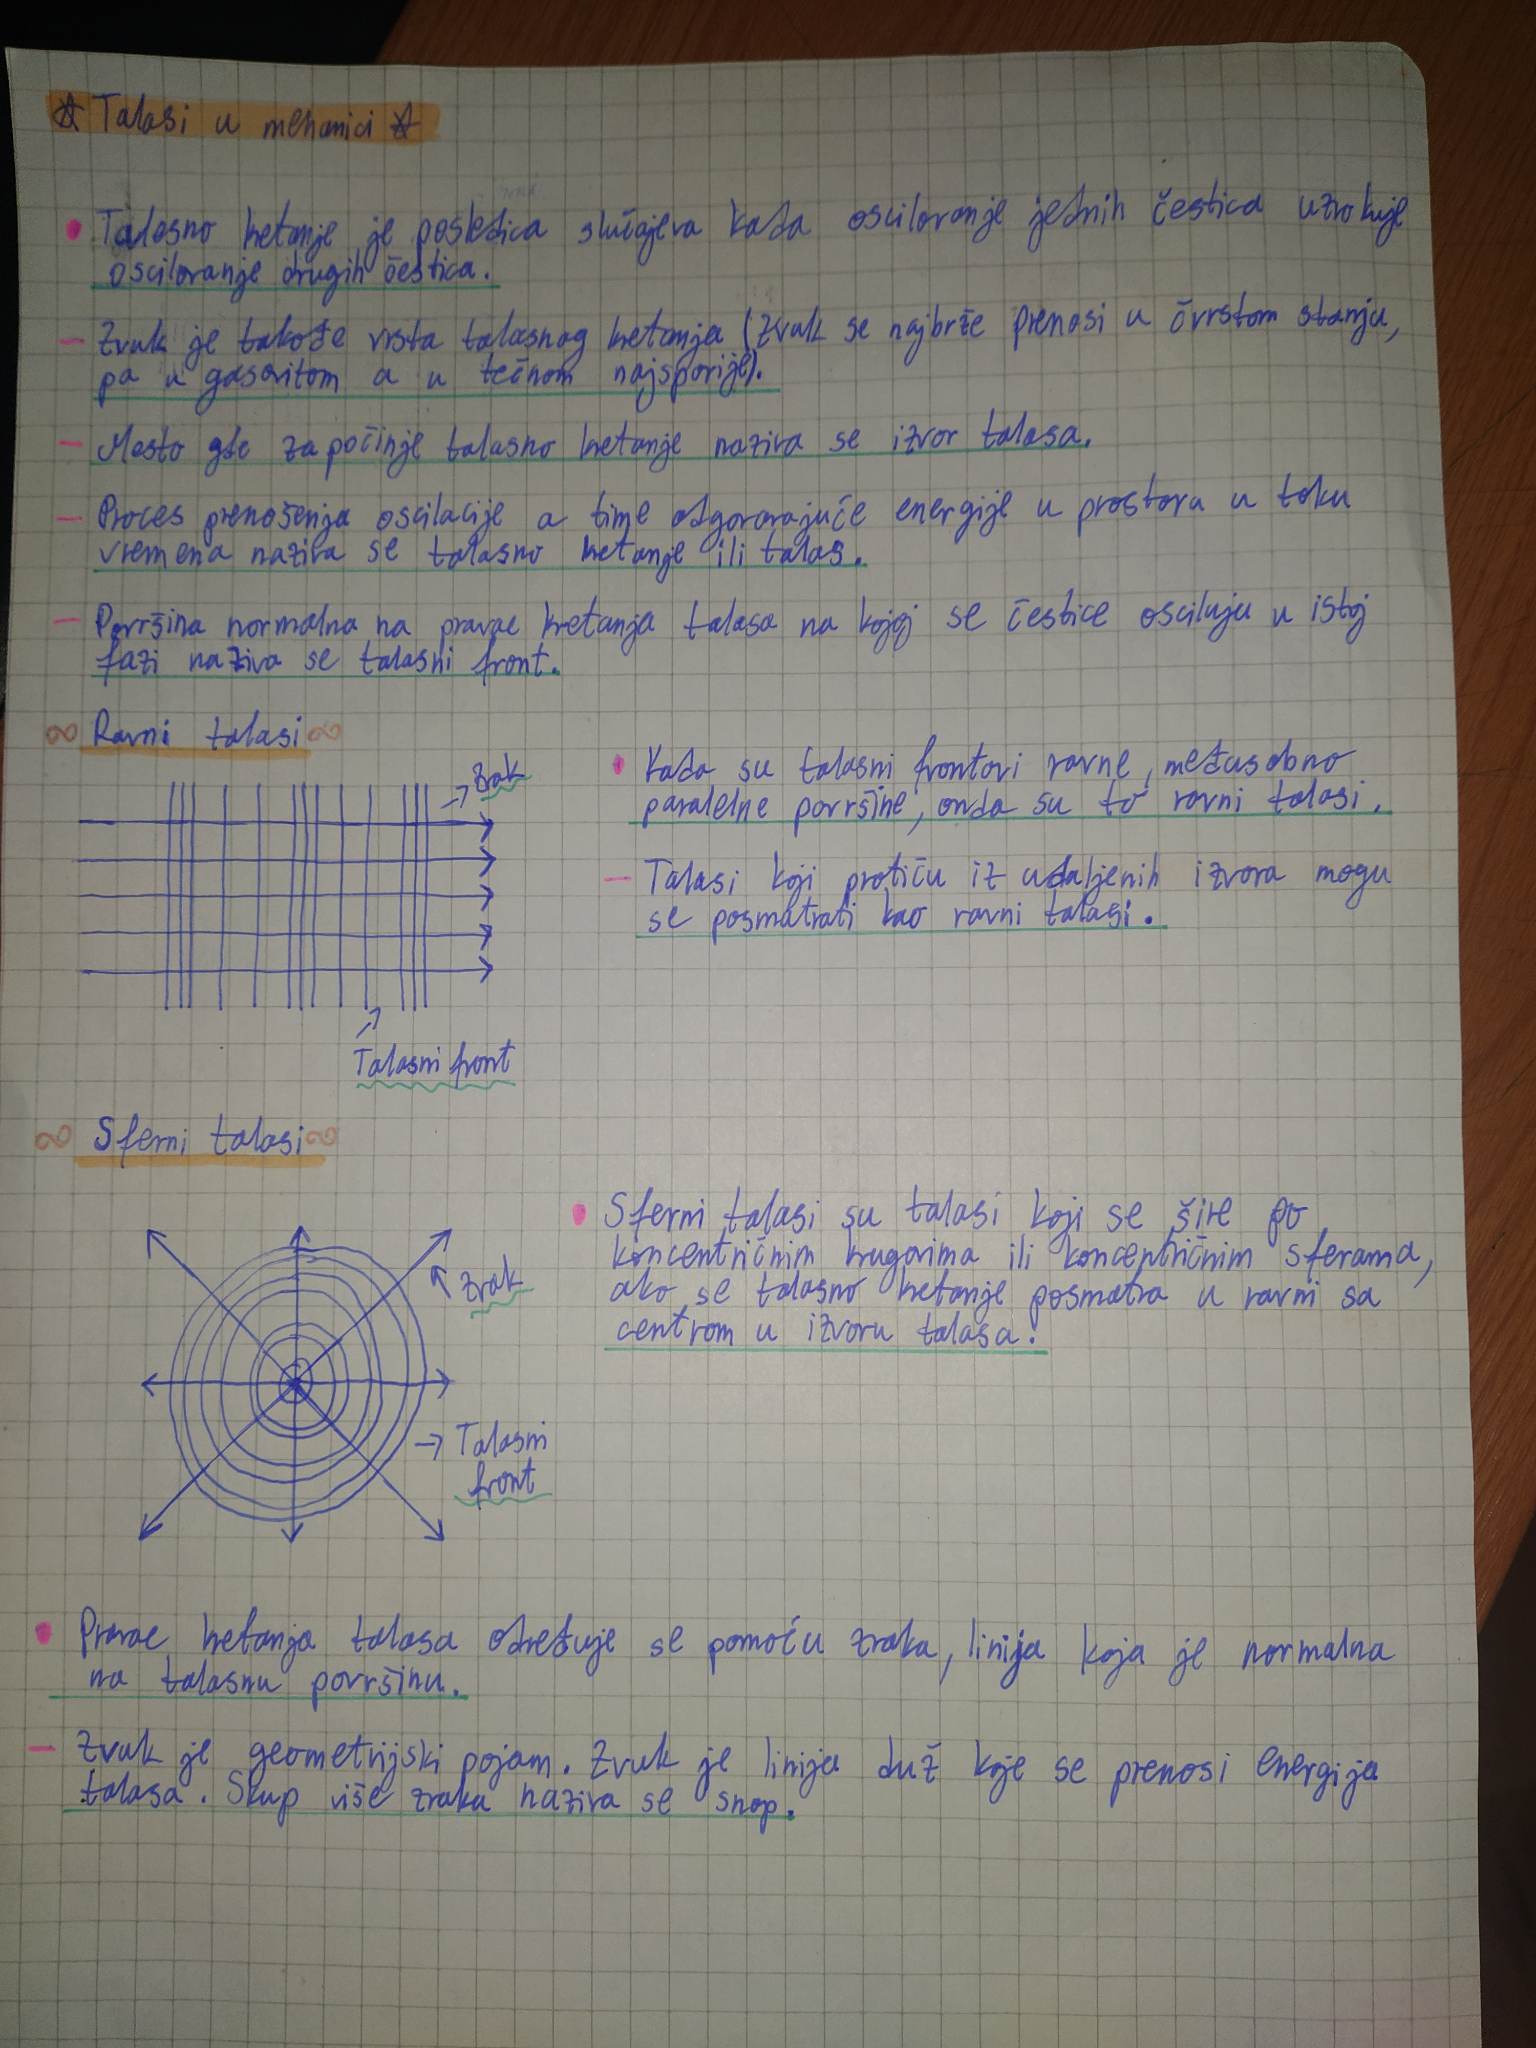 ☆ Talasi u mehanici ☆
• Talasno kretanje je posledica slučajeva kada osciloranje jednih čestica uzrokuje
osciloranje drugih čestica.
- Zvuk je takođe vrsta talasnog kretanja (zvuk se najbrže prenosi u čvrstom stanju,
pa u gasovitom a u tečnom najsporije).
- Mesto gde započinje talasno kretanje naziva se izvor talasa.
- Proces prenošenja oscilacije a time odgovarajuće energije u prostora u toku
vremena naziva se talasno kretanje ili talas.
- Površina normalna na pravac kretanja talasa na kojoj se čestice osciluju u istoj
fazi naziva se talasni front.
∞ Ravni talasi ∞
→ Zrak
Talasni front
• Kada su talasni frontovi ravne, međusobno
paralelne površine, onda su to ravni talasi.
- Talasi koji protiču iz udaljenih izvora mogu
se posmatrati kao ravni talasi.
∞ Sferni talasi ∞
Zrak
→ Talasni
front
• Sferni talasi su talasi koji se šire po
koncentričnim krugovima ili koncentričnim sferama,
ako se talasno kretanje posmatra u ravni sa
centrom u izvoru talasa.
• Pravac kretanja talasa određuje se pomoću zraka, linija koja je normalna
na talasnu površinu.
- Zvuk je geometrijski pojam. Zvuk je linija duž koje se prenosi energija
talasa. Skup više zraka naziva se snop.